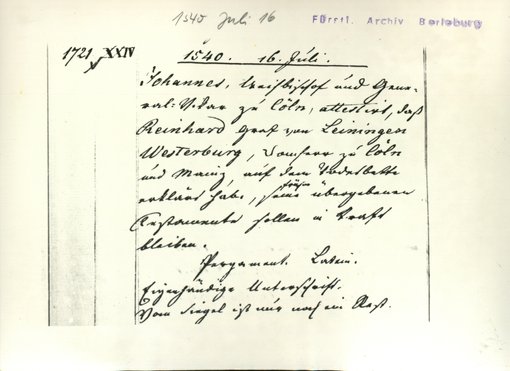 1540 Juli 16
Fürstl. Archiv Berleburg
1721 XXIV
1540. 16. Juli.
Johannes, Weihbischof und Gene-
ral-Vikar zu Cöln, attestirt, daß
Reinhard Graf von Leiningen
Westerburg, Domherr zu Cöln
und Mainz auf dem Todesbette
erklärt habe, seine früher übergebenen
Testamente sollen in Kraft
bleiben.
Pergament. Latein.
Eigenhändige Unterschrift.
Vom Siegel ist nur noch ein Rest.